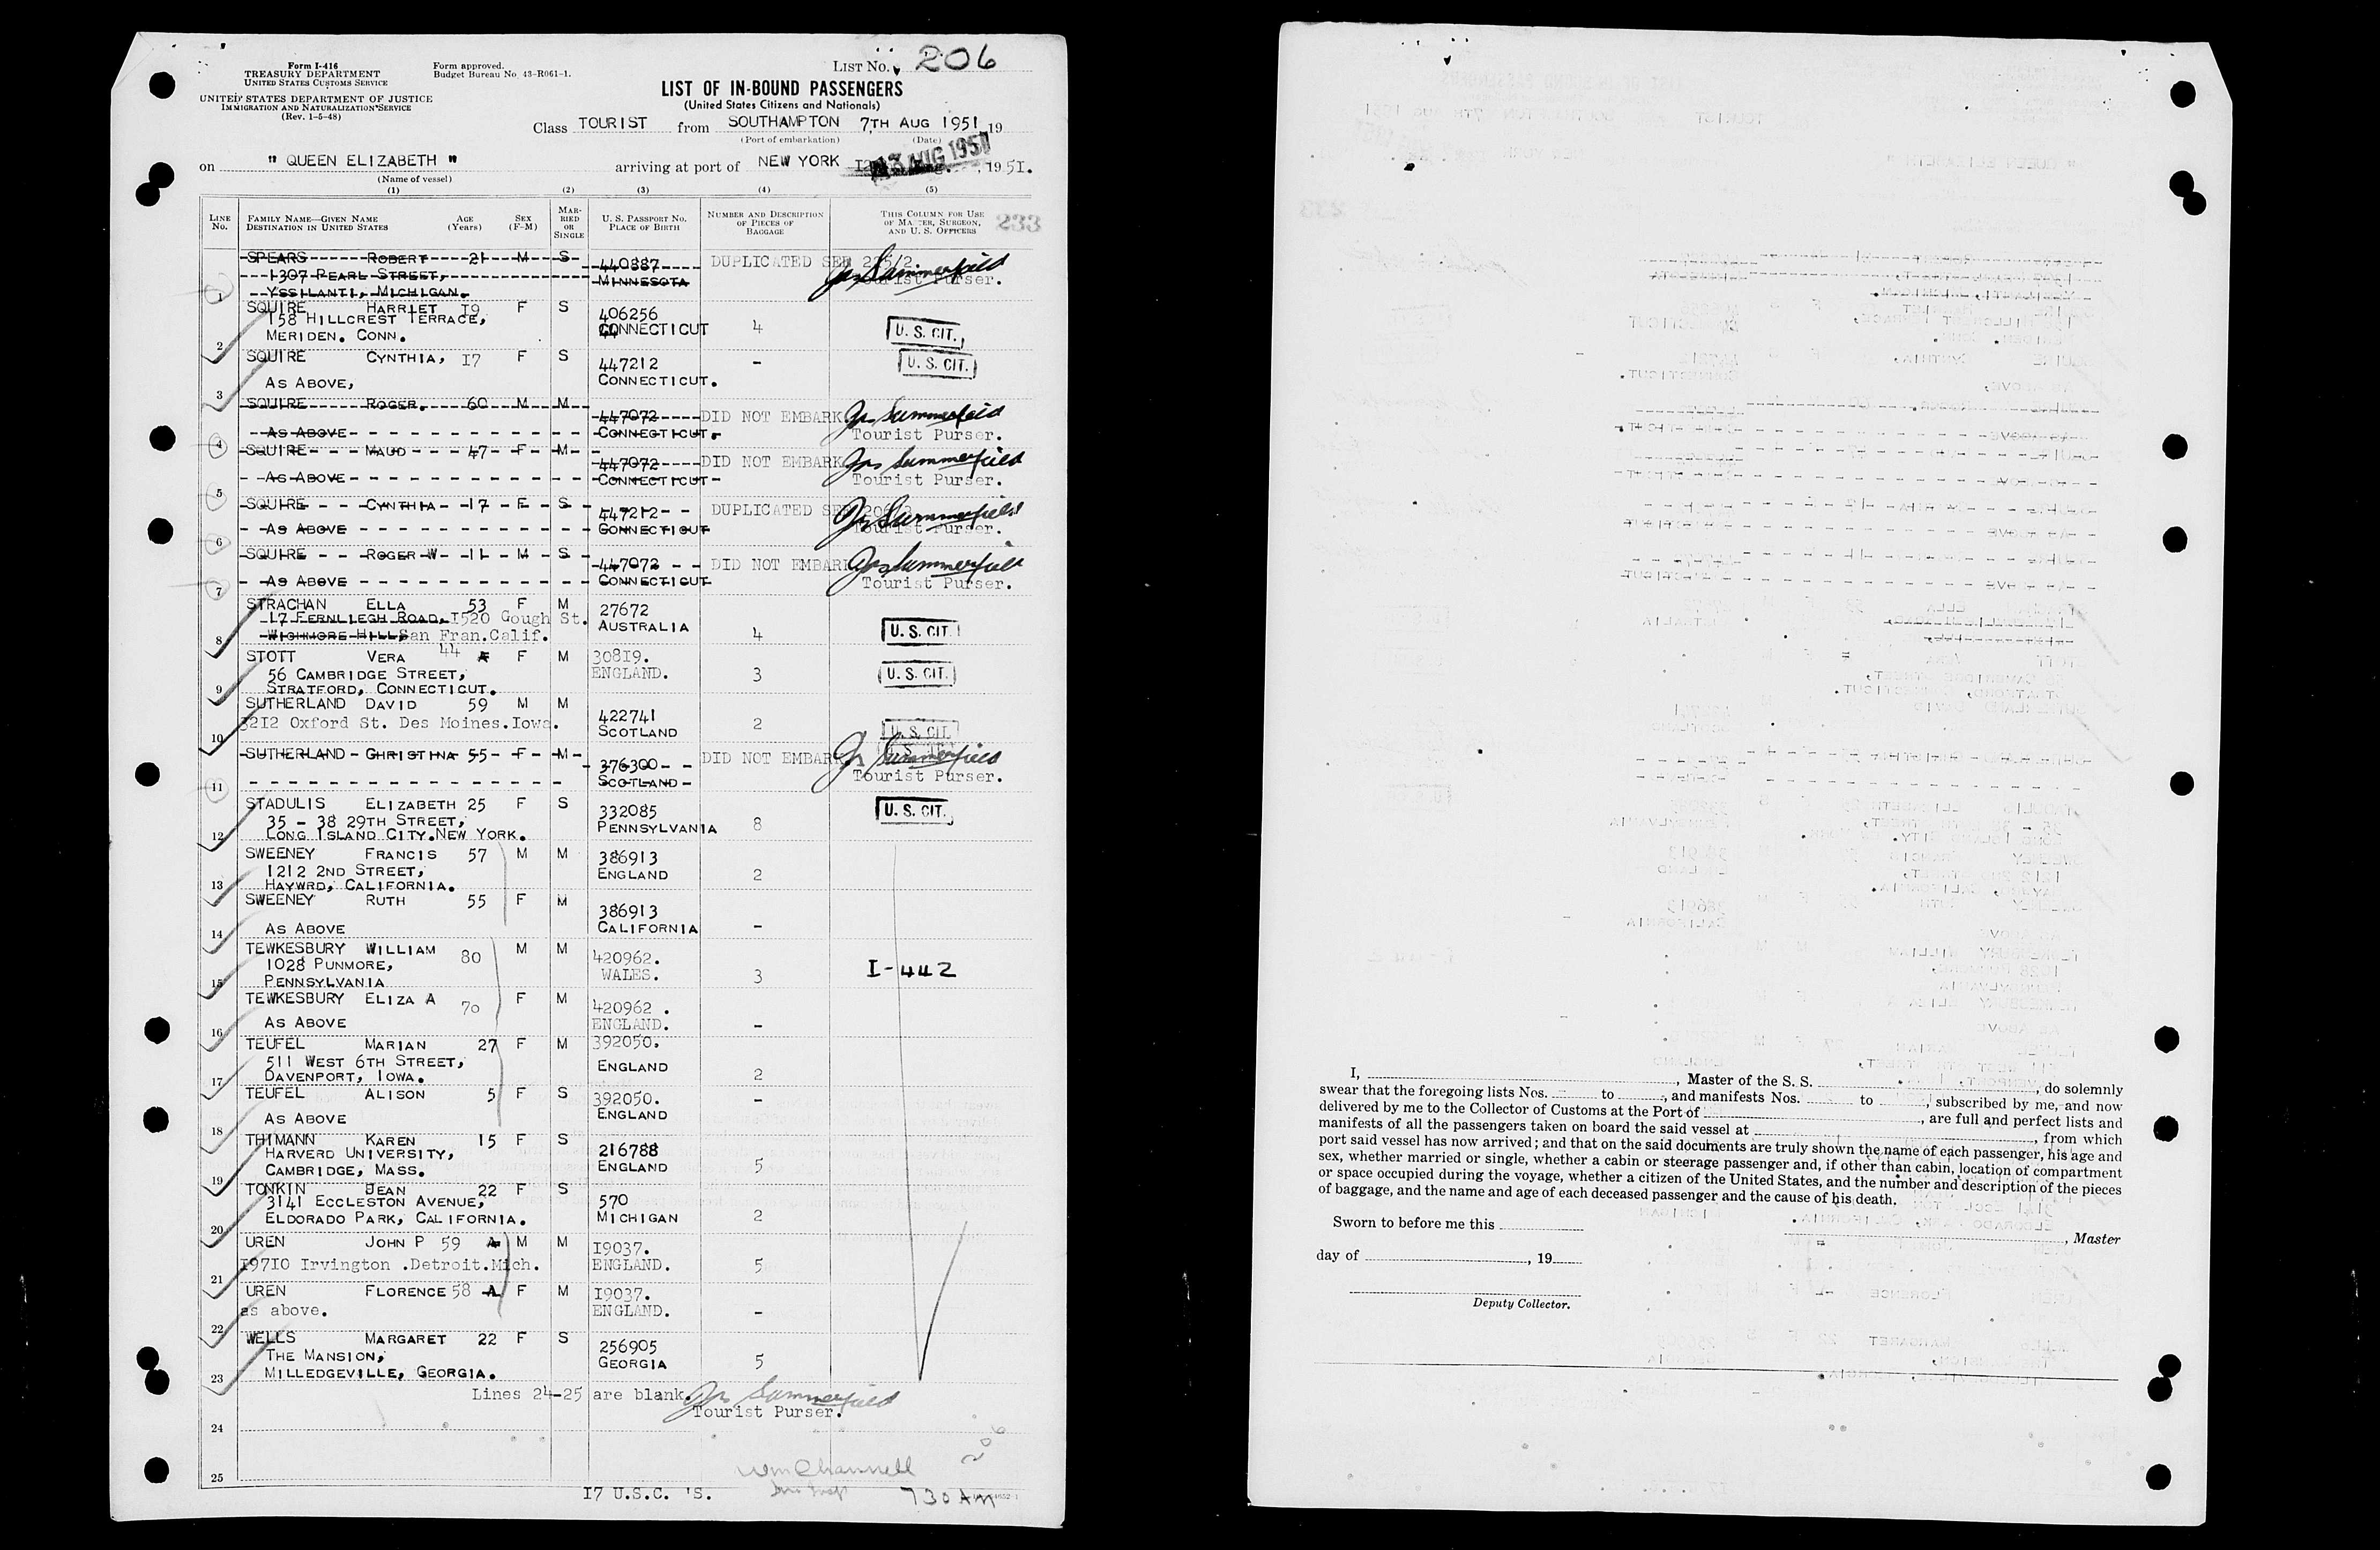 Form I-416
TREASURY DEPARTMENT
UNITED STATES CUSTOMS SERVICE
UNITED STATES DEPARTMENT OF JUSTICE
IMMIGRATION AND NATURALIZATION SERVICE
(Rev. 1-5-48)
Form approved.
Budget Bureau No. 43-R061-1.
LIST NO. 206
LIST OF IN-BOUND PASSENGERS
(United States Citizens and Nationals)
Class TOURIST from SOUTHAMPTON 7TH AUG 1951 19
(Port of embarkation) (Date)
on " QUEEN ELIZABETH " arriving at port of NEW YORK 13 AUG 1951 , 1951.
(Name of vessel)
(1) (2) (3) (4) (5)
LINE NO. FAMILY NAME—GIVEN NAME DESTINATION IN UNITED STATES AGE (Years) SEX (F-M) MARRIED OR SINGLE U. S. PASSPORT NO. PLACE OF BIRTH NUMBER AND DESCRIPTION OF PIECES OF BAGGAGE THIS COLUMN FOR USE OF MASTER, SURGEON, AND U. S. OFFICERS 233
SPEARS ROBERT 21 M S 440887 DUPLICATED SEE 225/2
1307 PEARL STREET, MINNESOTA Tourist Purser.
1 YSSILANTI, MICHIGAN.
SQUIRE HARRIET 19 F S 406256
158 HILLCREST TERRACE, CONNECTICUT 4 U. S. CIT.
2 MERIDEN. CONN.
SQUIRE CYNTHIA, 17 F S 447212 - U. S. CIT.
3 AS ABOVE, CONNECTICUT.
SQUIRE ROGER. 60 M M 447072 DID NOT EMBARK Jn Summerfield
4 AS ABOVE CONNECTICUT. Tourist Purser.
SQUIRE MAUD 47 F M 447072 DID NOT EMBARK Jn Summerfield
5 AS ABOVE CONNECTICUT Tourist Purser.
SQUIRE CYNTHIA 17 F S 447212 DUPLICATED SEE Jn Summerfield
6 AS ABOVE CONNECTICUT Tourist Purser.
SQUIRE ROGER W 11 M S 447072 DID NOT EMBARK Jn Summerfield
7 AS ABOVE CONNECTICUT Tourist Purser.
STRACHAN ELLA 53 F M 27672
17 FERNLIEGH ROAD, 1520 Gough St. AUSTRALIA 4 U. S. CIT.
8 WICHMORE HILL, San Fran.Calif.
STOTT VERA 44 F M 30819.
56 CAMBRIDGE STREET, ENGLAND. 3 U. S. CIT.
9 STRATFORD, CONNECTICUT.
SUTHERLAND DAVID 59 M M 422741
3212 Oxford St. Des Moines.Iowa. SCOTLAND 2 U. S. CIT.
10
SUTHERLAND CHRISTINA 55 F M 376300 DID NOT EMBARK Jn Summerfield
11 SCOTLAND Tourist Purser.
STADULIS ELIZABETH 25 F S 332085 U. S. CIT.
35 - 38 29TH STREET, PENNSYLVANIA 8
12 LONG ISLAND CITY.NEW YORK.
SWEENEY FRANCIS 57 M M 386913
1212 2ND STREET, ENGLAND 2
13 HAYWRD, CALIFORNIA.
SWEENEY RUTH 55 F M 386913
14 AS ABOVE CALIFORNIA -
TEWKESBURY WILLIAM 80 M M 420962.
1028 PUNMORE, WALES. 3 I-442
15 PENNSYLVANIA
TEWKESBURY ELIZA A 70 F M 420962 .
16 AS ABOVE ENGLAND. -
TEUFEL MARIAN 27 F M 392050.
511 WEST 6TH STREET, ENGLAND 2
17 DAVENPORT, IOWA.
TEUFEL ALISON 5 F S 392050. -
18 AS ABOVE ENGLAND
THIMANN KAREN 15 F S 216788
HARVERD UNIVERSITY, ENGLAND 5
19 CAMBRIDGE, MASS.
TONKIN JEAN 22 F S 570
3141 ECCLESTON AVENUE, MICHIGAN 2
20 ELDORADO PARK, CALIFORNIA.
UREN JOHN P 59 M M 19037.
21 19710 Irvington .Detroit.Mich. ENGLAND. 5
UREN FLORENCE 58 A F M 19037.
22 as above. ENGLAND. -
WELLS MARGARET 22 F S 256905
THE MANSION, GEORGIA 5
23 MILLEDGEVILLE, GEORGIA.
Lines 24-25 are blank. Jn Summerfield
Tourist Purser.
24
25
206
Wm Channell
17 U.S.C. 'S. 730 AM
I, , Master of the S. S. , do solemnly
swear that the foregoing lists Nos. to , and manifests Nos. to , subscribed by me, and now
delivered by me to the Collector of Customs at the Port of , are full and perfect lists and
manifests of all the passengers taken on board the said vessel at , from which
port said vessel has now arrived; and that on the said documents are truly shown the name of each passenger, his age and
sex, whether married or single, whether a cabin or steerage passenger and, if other than cabin, location of compartment
or space occupied during the voyage, whether a citizen of the United States, and the number and description of the pieces
of baggage, and the name and age of each deceased passenger and the cause of his death.
Sworn to before me this
, Master
day of , 19
Deputy Collector.